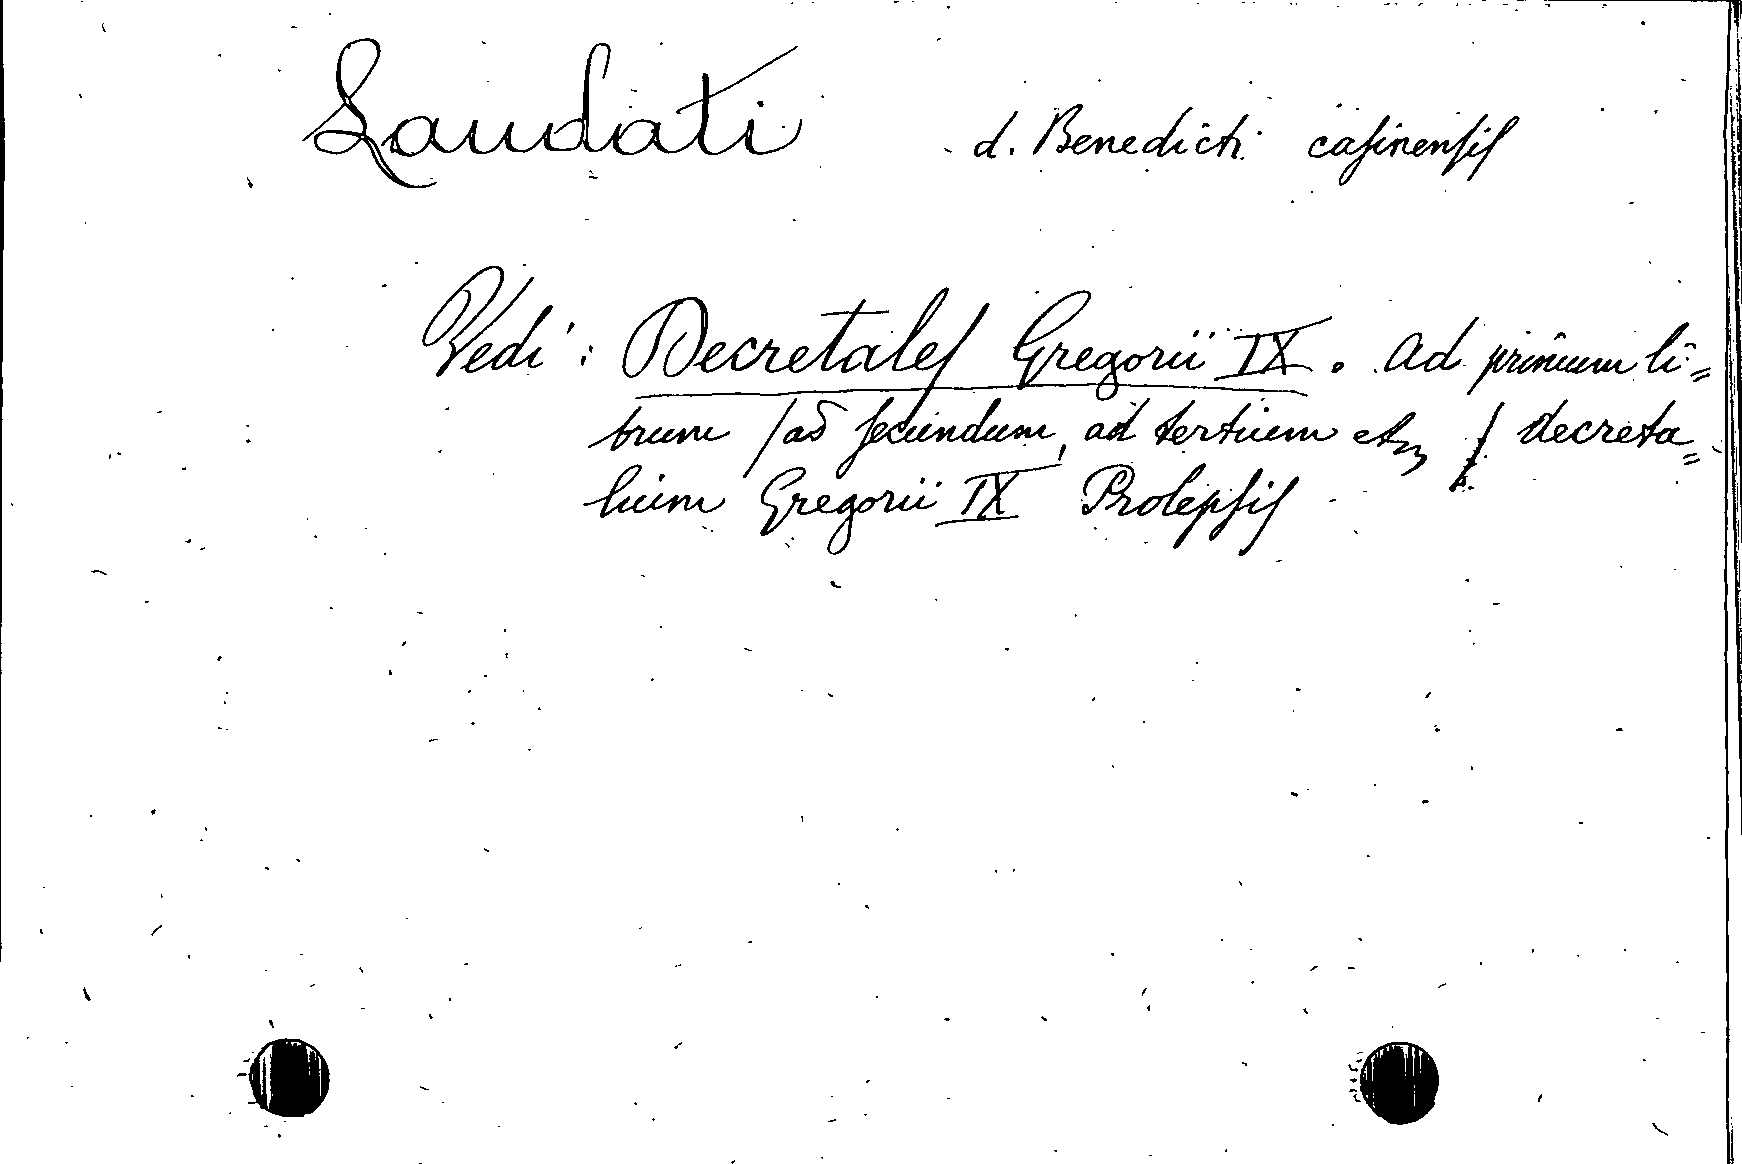 Laudati d. Benedicti casinensis
Vedi: Decretales Gregorii IX. Ad primum li=
brum /ad secundum, ad tertium etc / decreta=
lium Gregorii IX Prolepsis